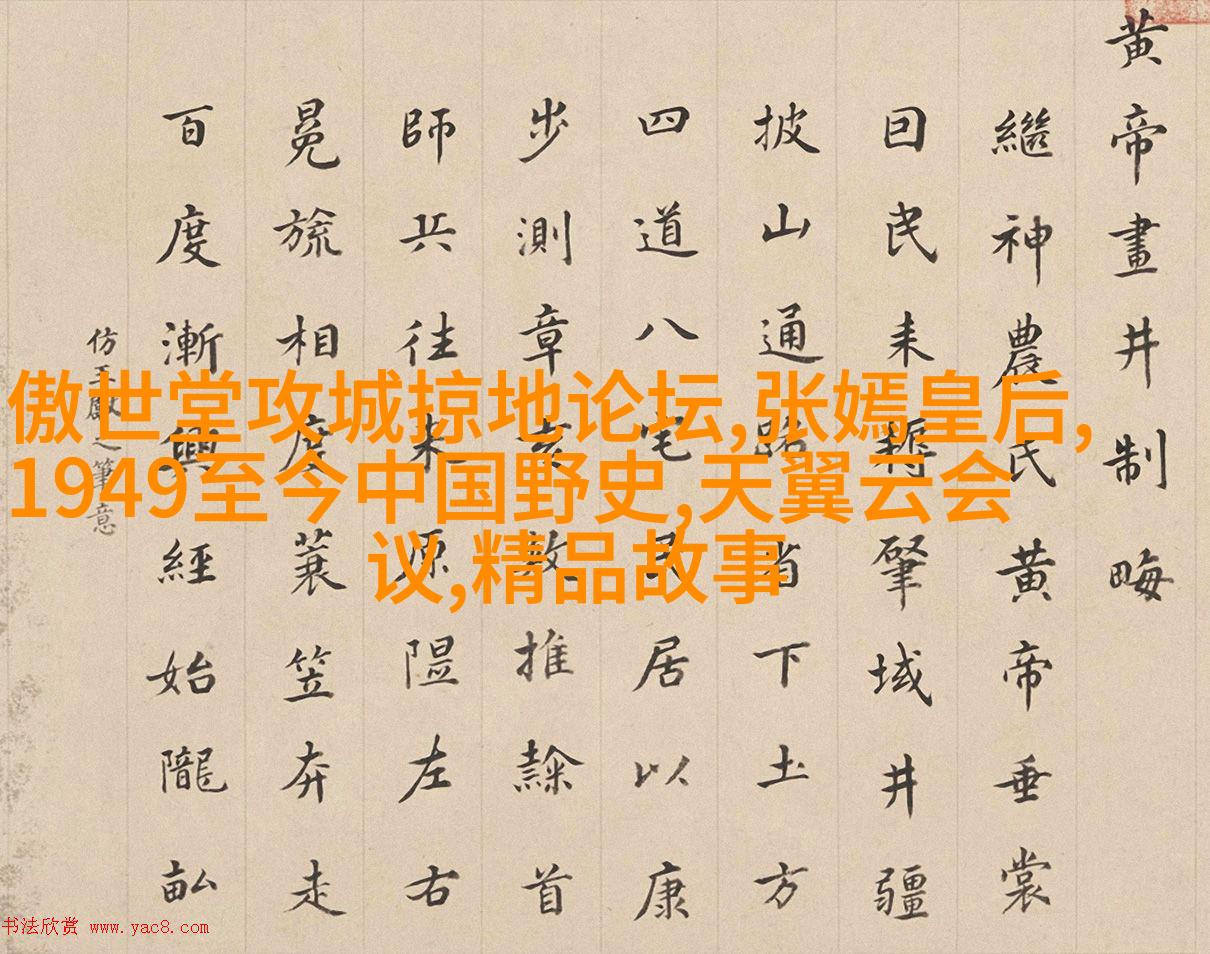 傲世堂攻城掠地论坛,张嫣皇后,
1949至今中国野史,天翼云会
议,精品故事
黄帝畫井制畮
繼神農氏黄帝垂裳
囙民耒耨肇域井疆
披山通路下土方
四道八宅民居以康
步測章亥數推隸首
師兵往来原隰左右
冕旒相度蓑笠奔走
百度漸興經始隴畝
仿王獻之筆意
书法欣赏 www.yac8.com